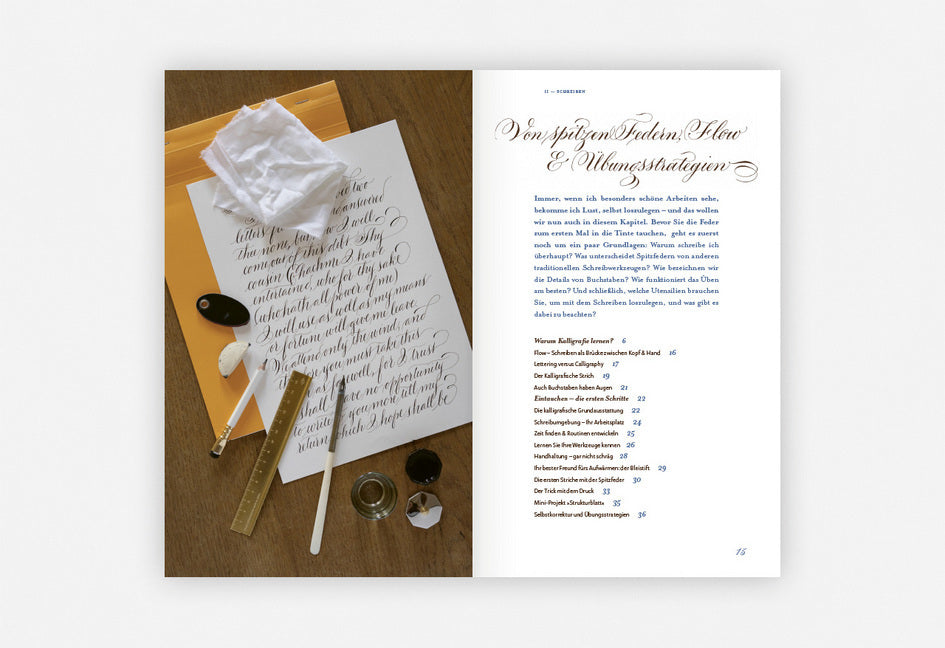 two
answered
letters
the none, but now I well
come out of this debt. My
cousin I have
entertaine, who for thy sake
(who hath all power in me)
I will use as well as my means
or fortune will give me leave.
We attend only the wind; and
you must take this
for I trust
shall have no opportunity
to write you more till my
return which I hope shall be
II — SCHREIBEN
Von spitzen Federn, Flow
& Übungsstrategien
Immer, wenn ich besonders schöne Arbeiten sehe,
bekomme ich Lust, selbst loszulegen – und das wollen
wir nun auch in diesem Kapitel. Bevor Sie die Feder
zum ersten Mal in die Tinte tauchen, geht es zuerst
noch um ein paar Grundlagen: Warum schreibe ich
überhaupt? Was unterscheidet Spitzfedern von anderen
traditionellen Schreibwerkzeugen? Wie bezeichnen wir
die Details von Buchstaben? Wie funktioniert das Üben
am besten? Und schließlich, welche Utensilien brauchen
Sie, um mit dem Schreiben loszulegen, und was gibt es
dabei zu beachten?
Warum Kalligrafie lernen? 6
Flow – Schreiben als Brücke zwischen Kopf & Hand 16
Lettering versus Calligraphy 17
Der Kalligrafische Strich 19
Auch Buchstaben haben Augen 21
Eintauchen – die ersten Schritte 22
Die kalligrafische Grundausstattung 22
Schreibumgebung – Ihr Arbeitsplatz 24
Zeit finden & Routinen entwickeln 25
Lernen Sie Ihre Werkzeuge kennen 26
Handhaltung – gar nicht schräg 28
Ihr bester Freund fürs Aufwärmen: der Bleistift 29
Die ersten Striche mit der Spitzfeder 30
Der Trick mit dem Druck 33
Mini-Projekt »Strukturblatt« 35
Selbstkorrektur und Übungsstrategien 36
15